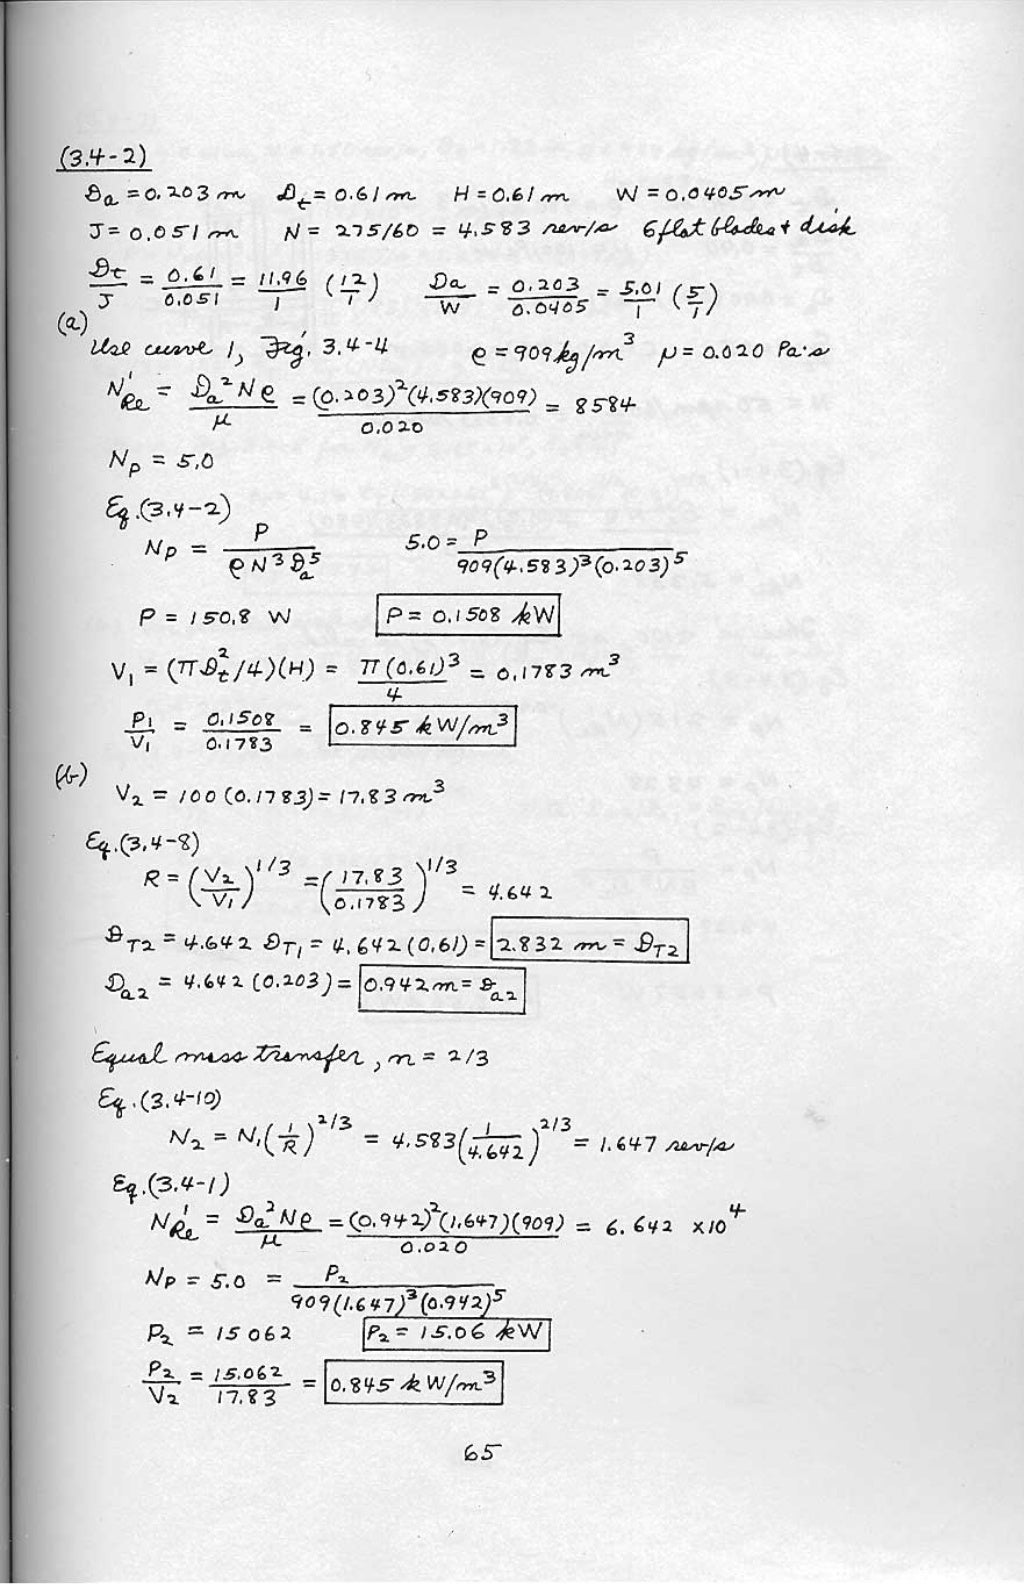 (3.4-2)
Da = 0.203 m   Dt = 0.61 m   H = 0.61 m   W = 0.0405 m
J = 0.051 m   N = 275/60 = 4.583 rev/s   6 flat blades + disk
Dt/J = 0.61/0.051 = 11.96/1 (12/1)   Da/W = 0.203/0.0405 = 5.01/1 (5/1)
(a)
Use curve 1, Fig. 3.4-4   ρ = 909 kg/m³   μ = 0.020 Pa·s
N'Re = Da²Nρ/μ = (0.203)²(4.583)(909)/0.020 = 8584
Np = 5.0
Eq.(3.4-2)
Np = P/(ρN³Da⁵)   5.0 = P/(909(4.583)³(0.203)⁵)
P = 150.8 W   P = 0.1508 kW
V₁ = (πDt²/4)(H) = π(0.61)³/4 = 0.1783 m³
P₁/V₁ = 0.1508/0.1783 = 0.845 kW/m³
(b)
V₂ = 100(0.1783) = 17.83 m³
Eq.(3.4-8)
R = (V₂/V₁)^1/3 = (17.83/0.1783)^1/3 = 4.642
DT2 = 4.642 DT1 = 4.642(0.61) = 2.832 m = DT2
Da2 = 4.642(0.203) = 0.942 m = Da2
Equal mass transfer, n = 2/3
Eq.(3.4-10)
N₂ = N₁(1/R)^2/3 = 4.583(1/4.642)^2/3 = 1.647 rev/s
Eq.(3.4-1)
N'Re = Da²Nρ/μ = (0.942)²(1.647)(909)/0.020 = 6.642 x10⁴
Np = 5.0 = P₂/(909(1.647)³(0.942)⁵)
P₂ = 15062   P₂ = 15.06 kW
P₂/V₂ = 15.062/17.83 = 0.845 kW/m³
65